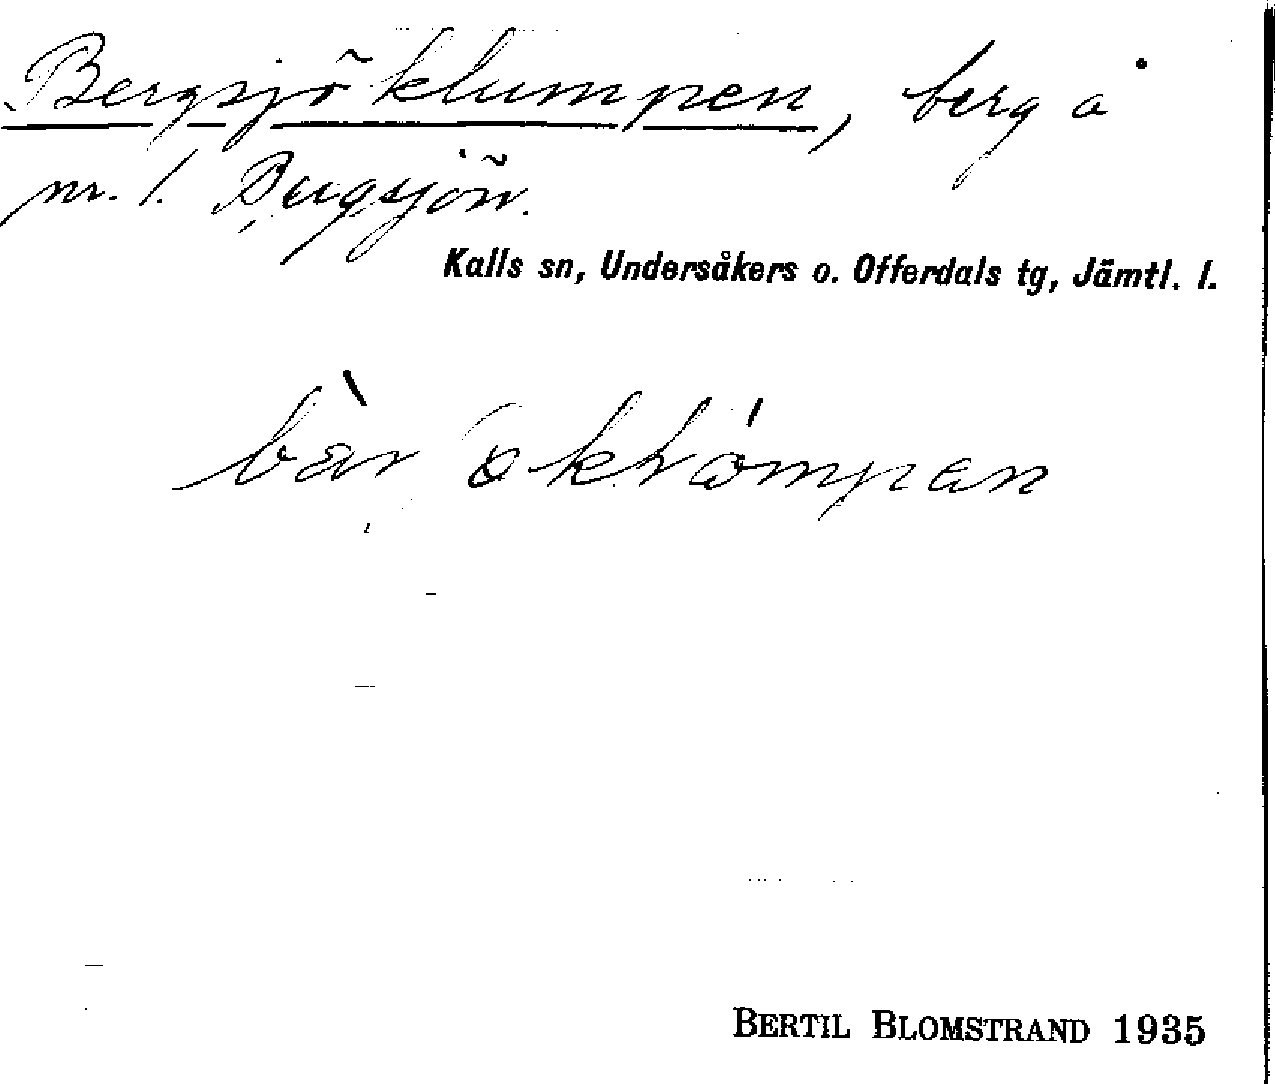 Bergsjöklumpen, berg å
nr. 1. Bergsjön.
Kalls sn, Undersåkers o. Offerdals tg, Jämtl. l.
BERTIL BLOMSTRAND 1935